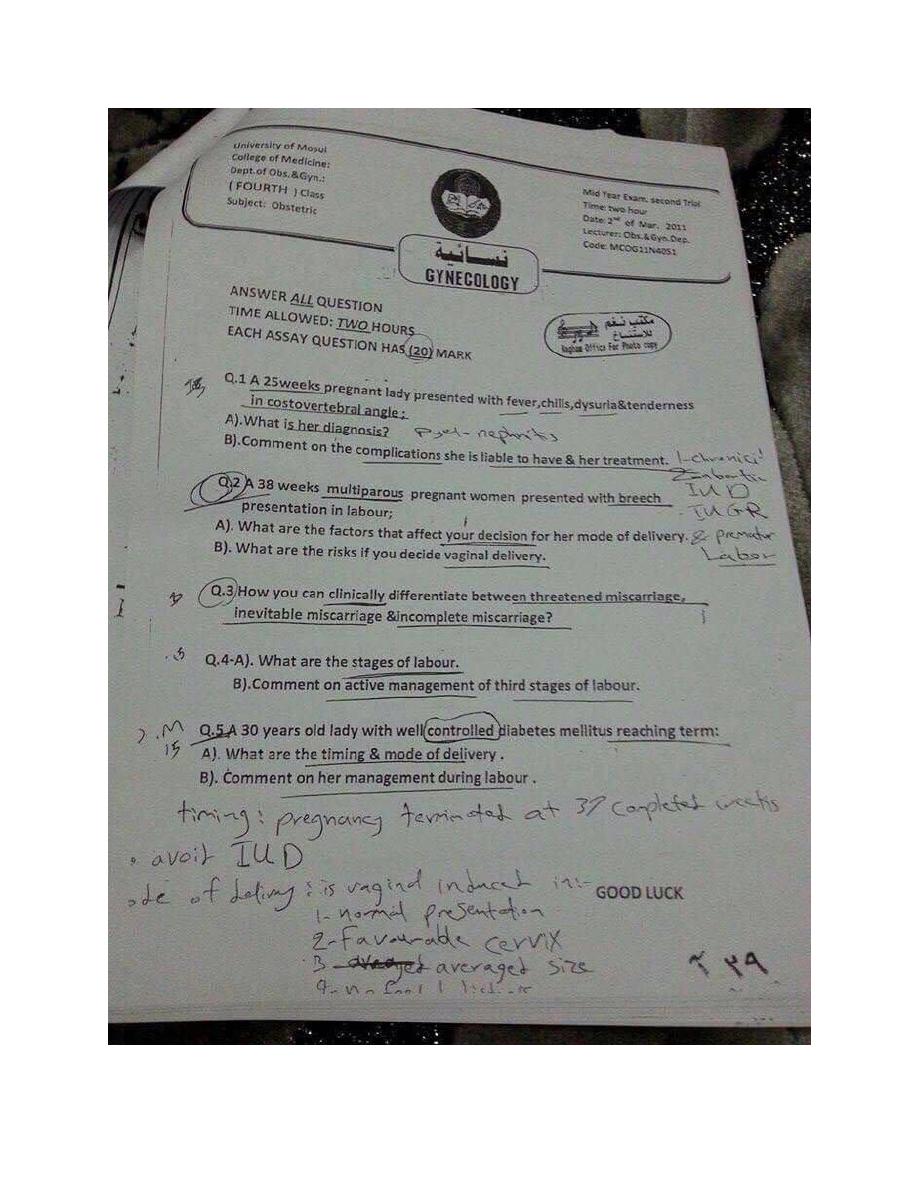 University of Mosul
College of Medicine:
Dept.of Obs.&Gyn.:
( FOURTH ) Class
Subject: Obstetric
Mid Year Exam, second Trial
Time: two hour
Date: 2nd of Mar. 2011
Lecturer: Obs.&Gyn.Dep.
Code: MCOG11N4051
نسائية
GYNECOLOGY
ANSWER ALL QUESTION
TIME ALLOWED: TWO HOURS
EACH ASSAY QUESTION HAS (20) MARK
مكتب نغم
للاستنساخ
Nagham Office For Photo copy
Q.1 A 25weeks pregnant lady presented with fever,chills,dysuria&tenderness
in costovertebral angle;
A).What is her diagnosis? Pyel-nephritis
B).Comment on the complications she is liable to have & her treatment.
IUD
IUGR
Q.2 A 38 weeks multiparous pregnant women presented with breech
presentation in labour;
A). What are the factors that affect your decision for her mode of delivery. & prematur
Labor
B). What are the risks if you decide vaginal delivery.
Q.3 How you can clinically differentiate between threatened miscarriage,
inevitable miscarriage &incomplete miscarriage?
Q.4-A). What are the stages of labour.
B).Comment on active management of third stages of labour.
Q.5.A 30 years old lady with well controlled diabetes mellitus reaching term:
15
A). What are the timing & mode of delivery .
B). Comment on her management during labour .
timing: pregnancy terminated at 37 completed weeks
avoit IUD
ode of delivry: is vaginal induced in:-
GOOD LUCK
1- normal presentation
2- favourable cervix
3- averaged size
٢٣٩